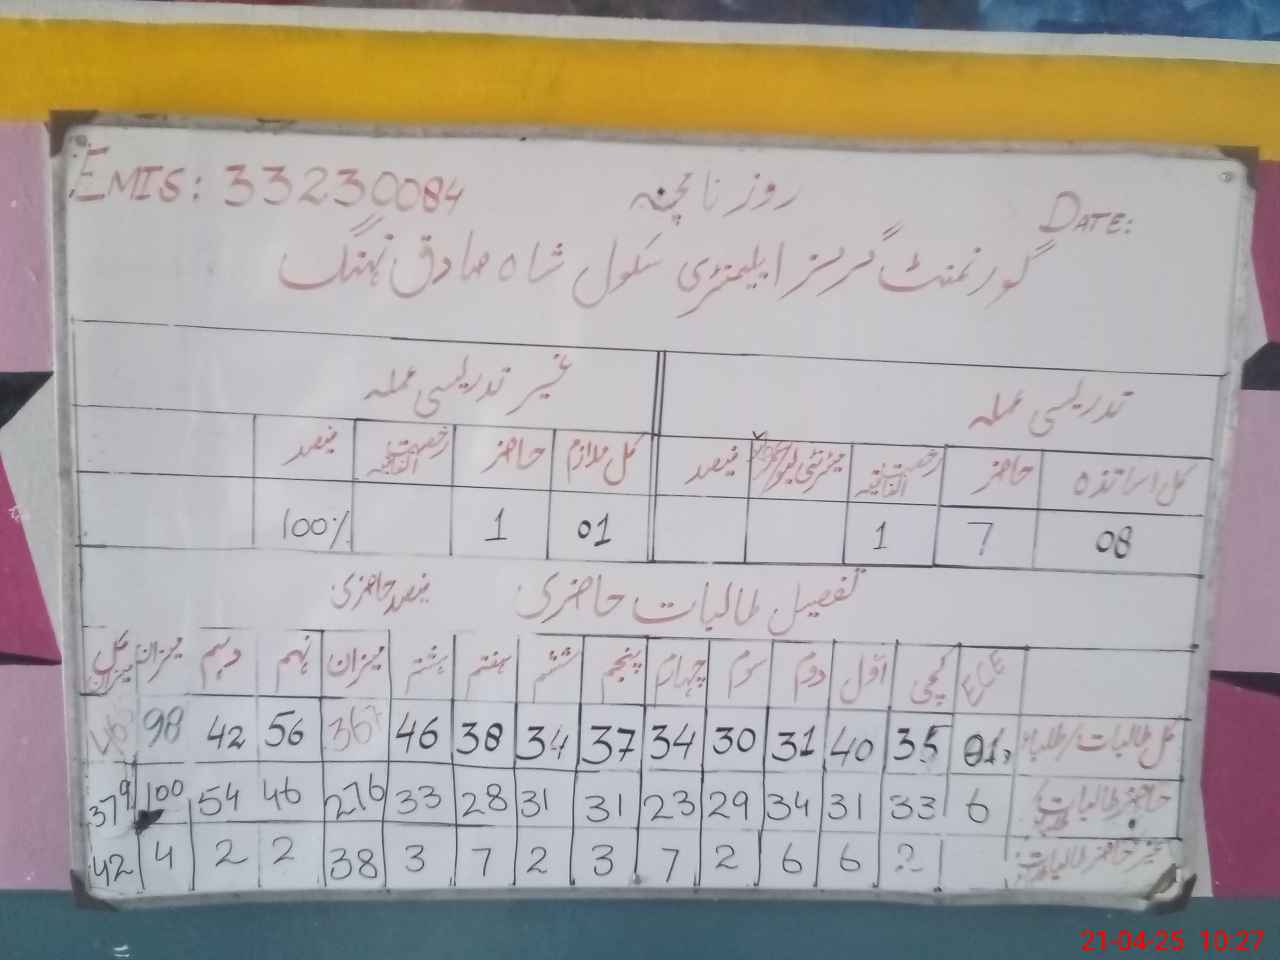 EMIS: 33230084 روزنامچہ DATE:
گورنمنٹ گرلز ایلیمنٹری سکول شاہ صادق نہنگ
تدریسی عملہ غیر تدریسی عملہ
کل اساتذہ حاضر رخصت اتفاقیہ میٹرنٹی لیو فیصد کل ملازم حاضر رخصت اتفاقیہ فیصد
08 7 1 01 1 100%
تفصیل طالبات حاضری: فیصد حاضری:
ECE کچی اول دوم سوم چہارم پنجم ششم ہفتم ہشتم میزان نہم دہم میزان کل میزان
کل طالبات/طلباء 35 40 31 30 34 37 34 38 46 56 42 98
حاضر طالبات 6 33 31 34 29 23 31 31 28 33 276 46 54 100 379
غیر حاضر طالبات 6 6 2 7 3 2 7 3 38 2 2 4 42
21-04-25 10:27